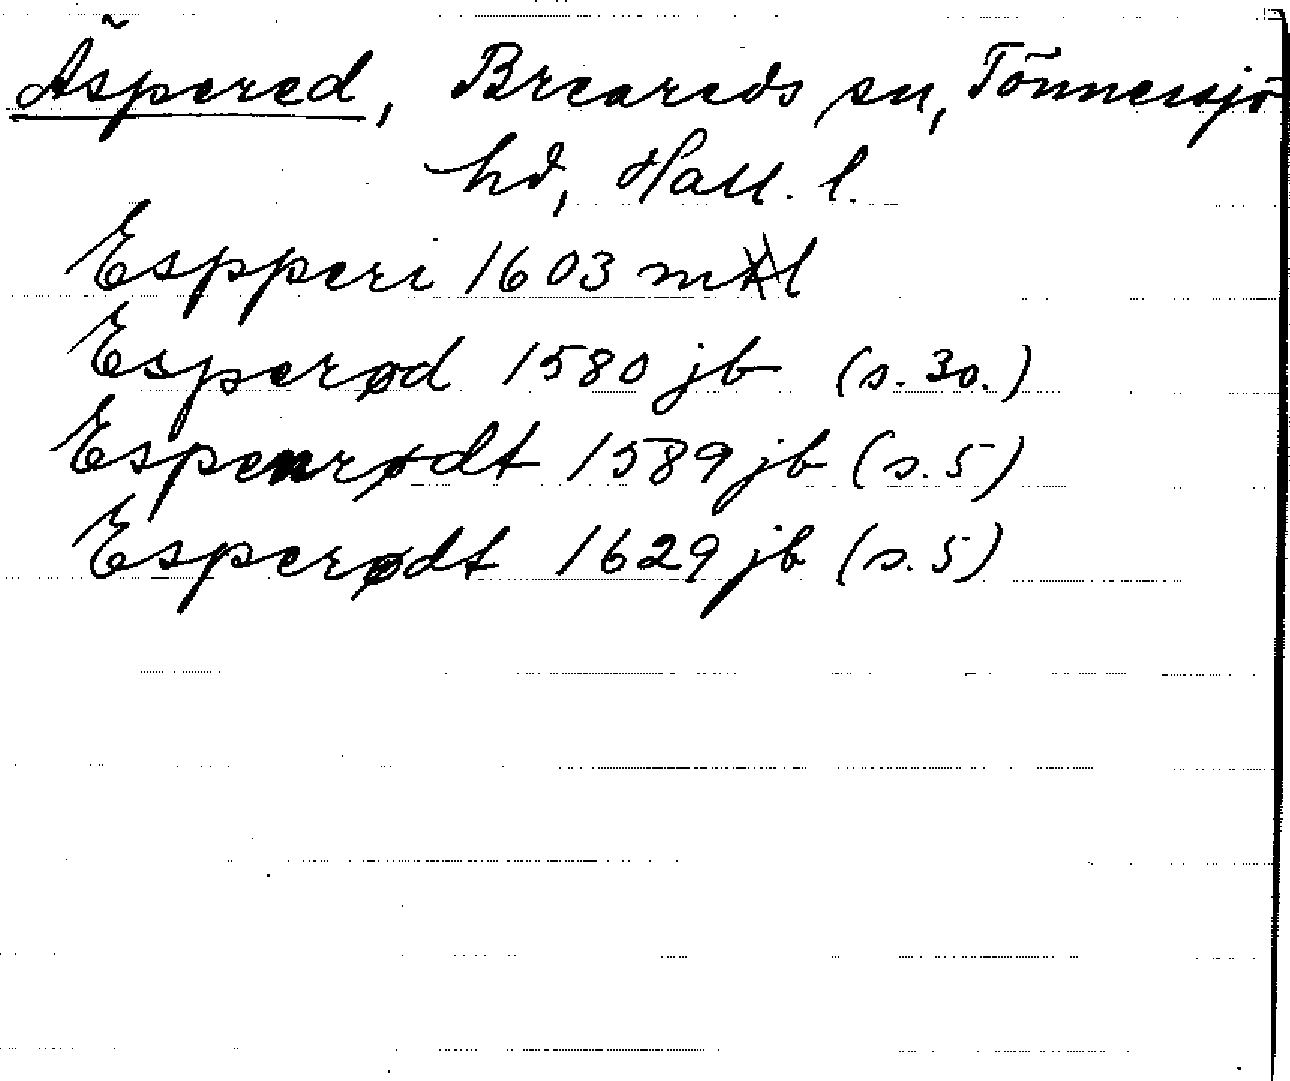 Äspered, Breareds sn, Tönnersjö
hd, Hall. l.
Espperi 1603 ml
Esperød 1580 jb (s. 30.)
Espenrødt 1589 jb (s. 5)
Esperødt 1629 jb (s. 5)